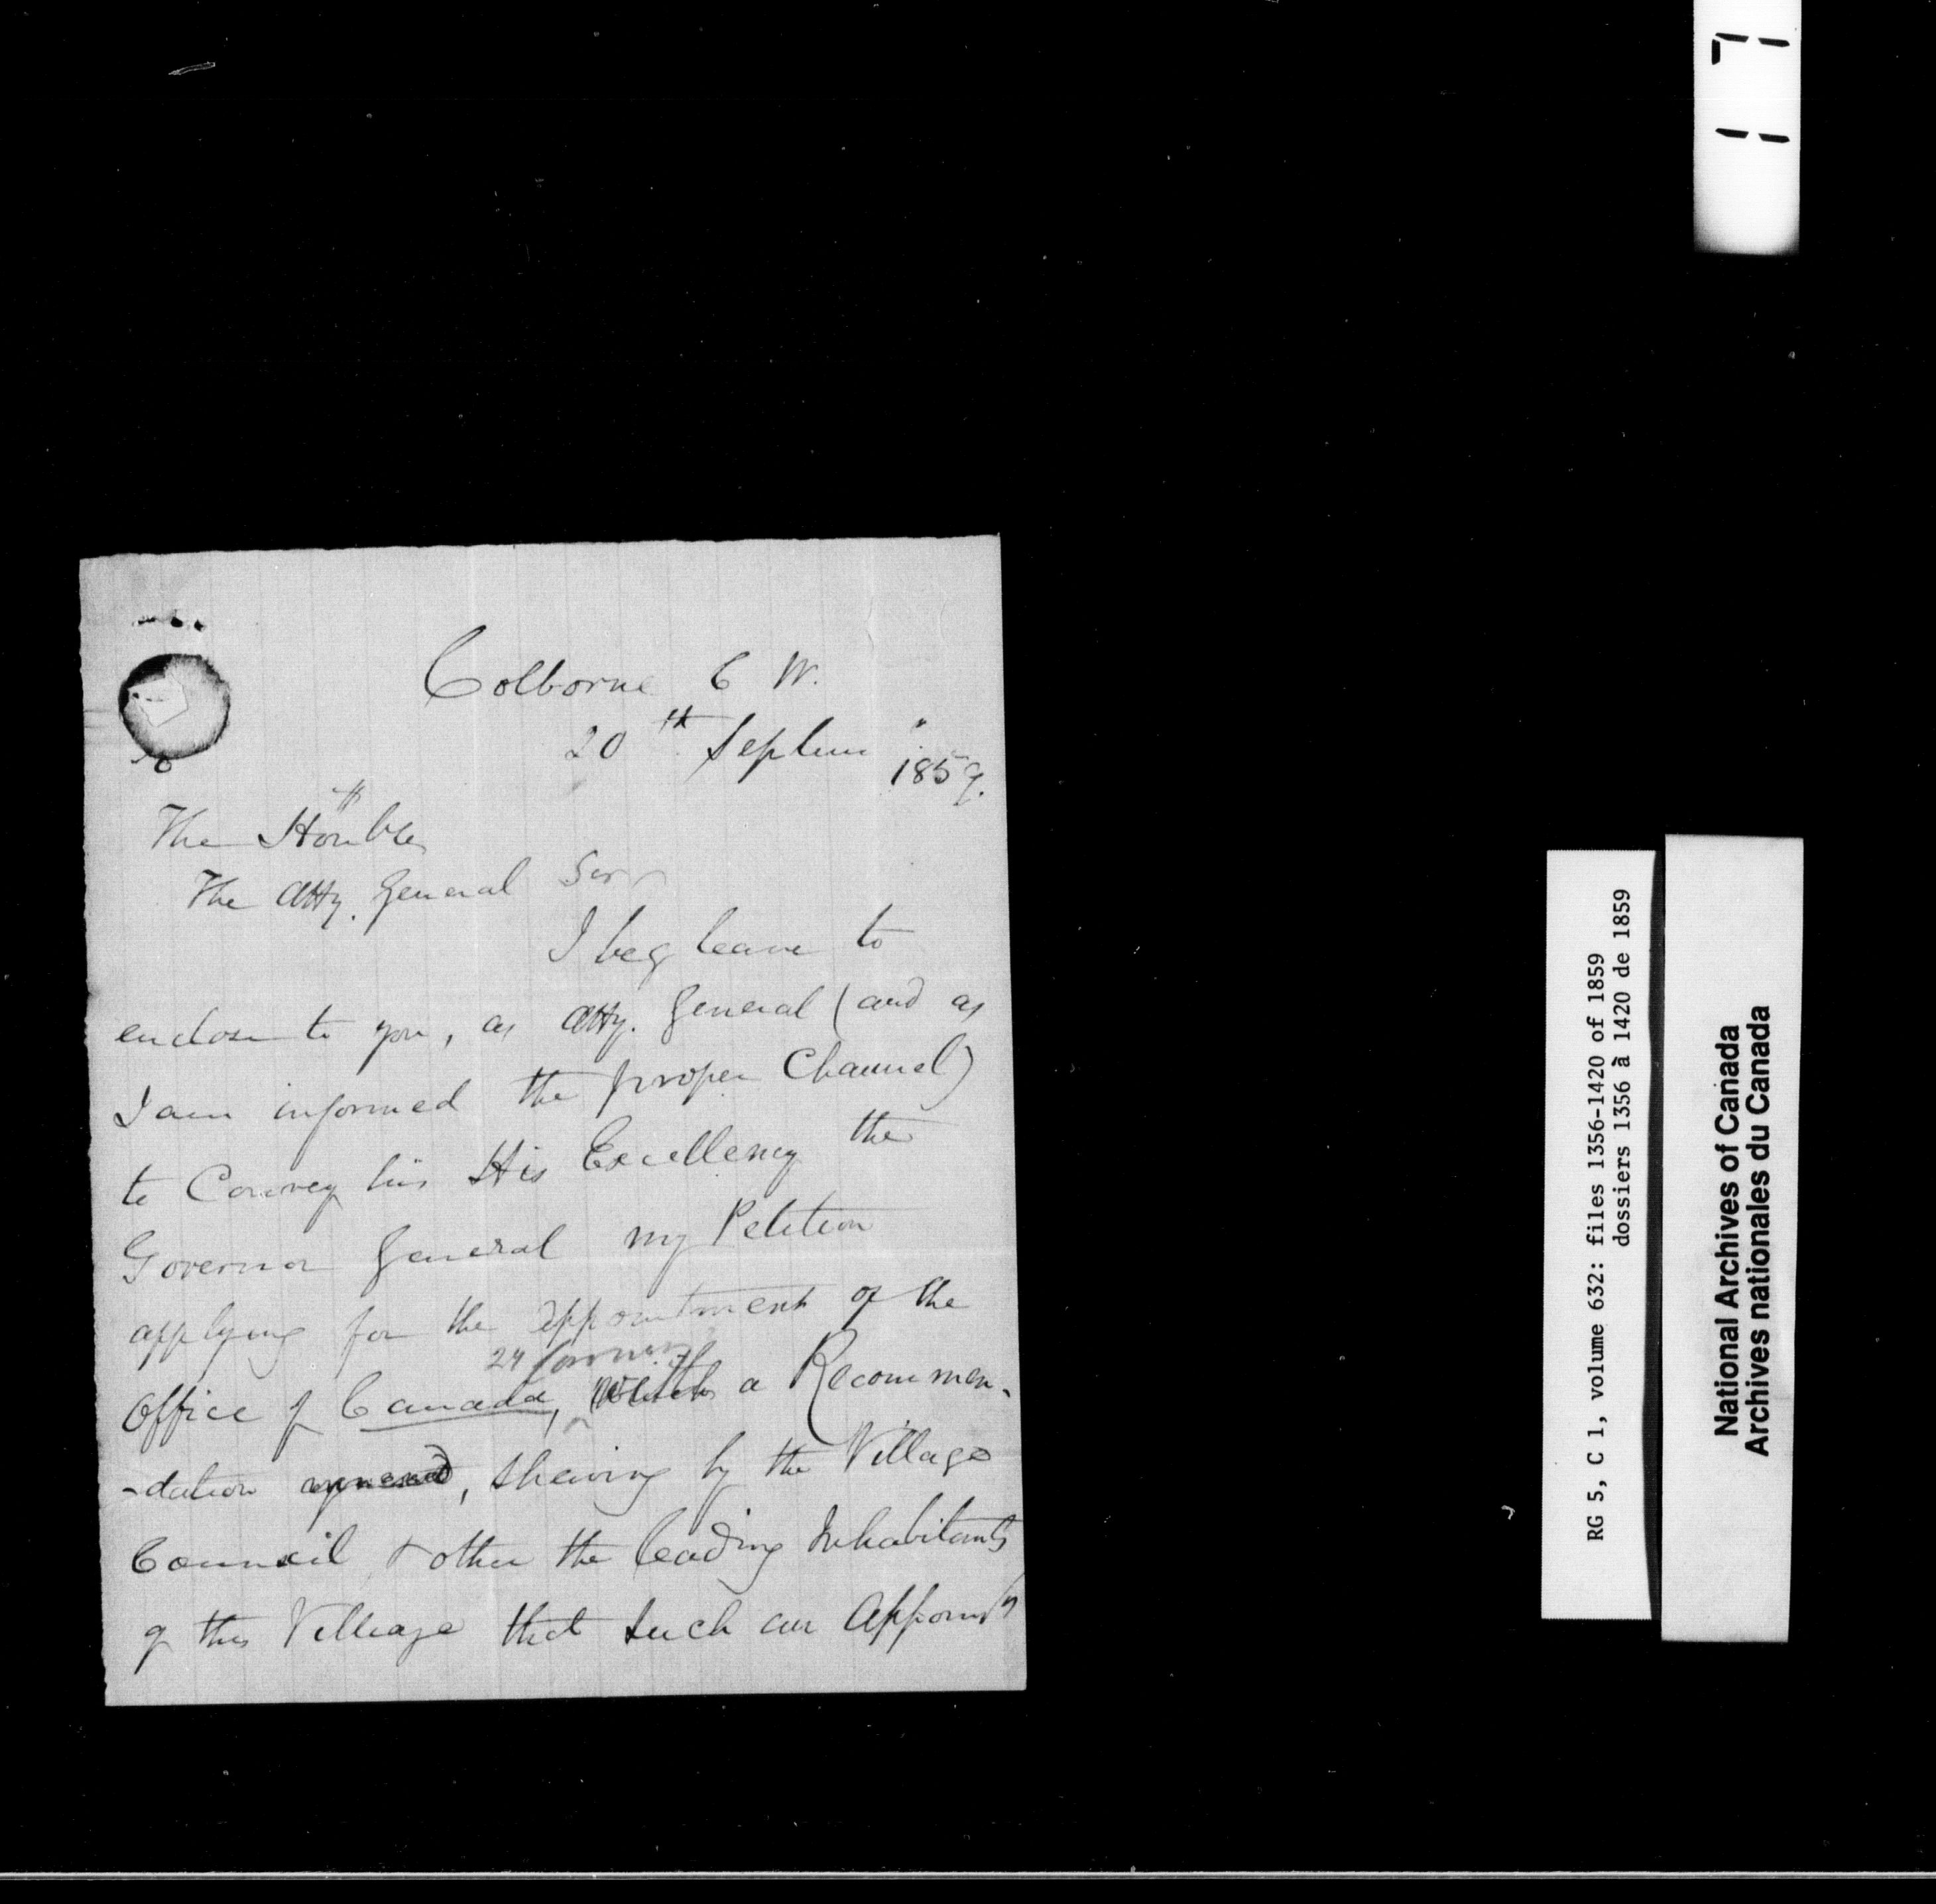 Colborne C W.
20th Septem "
1859.
The Honble
The Atty. General Sir
I beg leave to
enclose to you, as Atty. General (and as
I am informed the proper Channel)
to Convey his His Excellency the
Governor General my Petition
applying for the appointment of the
24
Office of Canada, with a Recommen-
-dation, shewing by the Village
Council & other the leading Inhabitants
of this Village that such an Appoint
RG 5, C 1, volume 632: files 1356-1420 of 1859
dossiers 1356 à 1420 de 1859
National Archives of Canada
Archives nationales du Canada